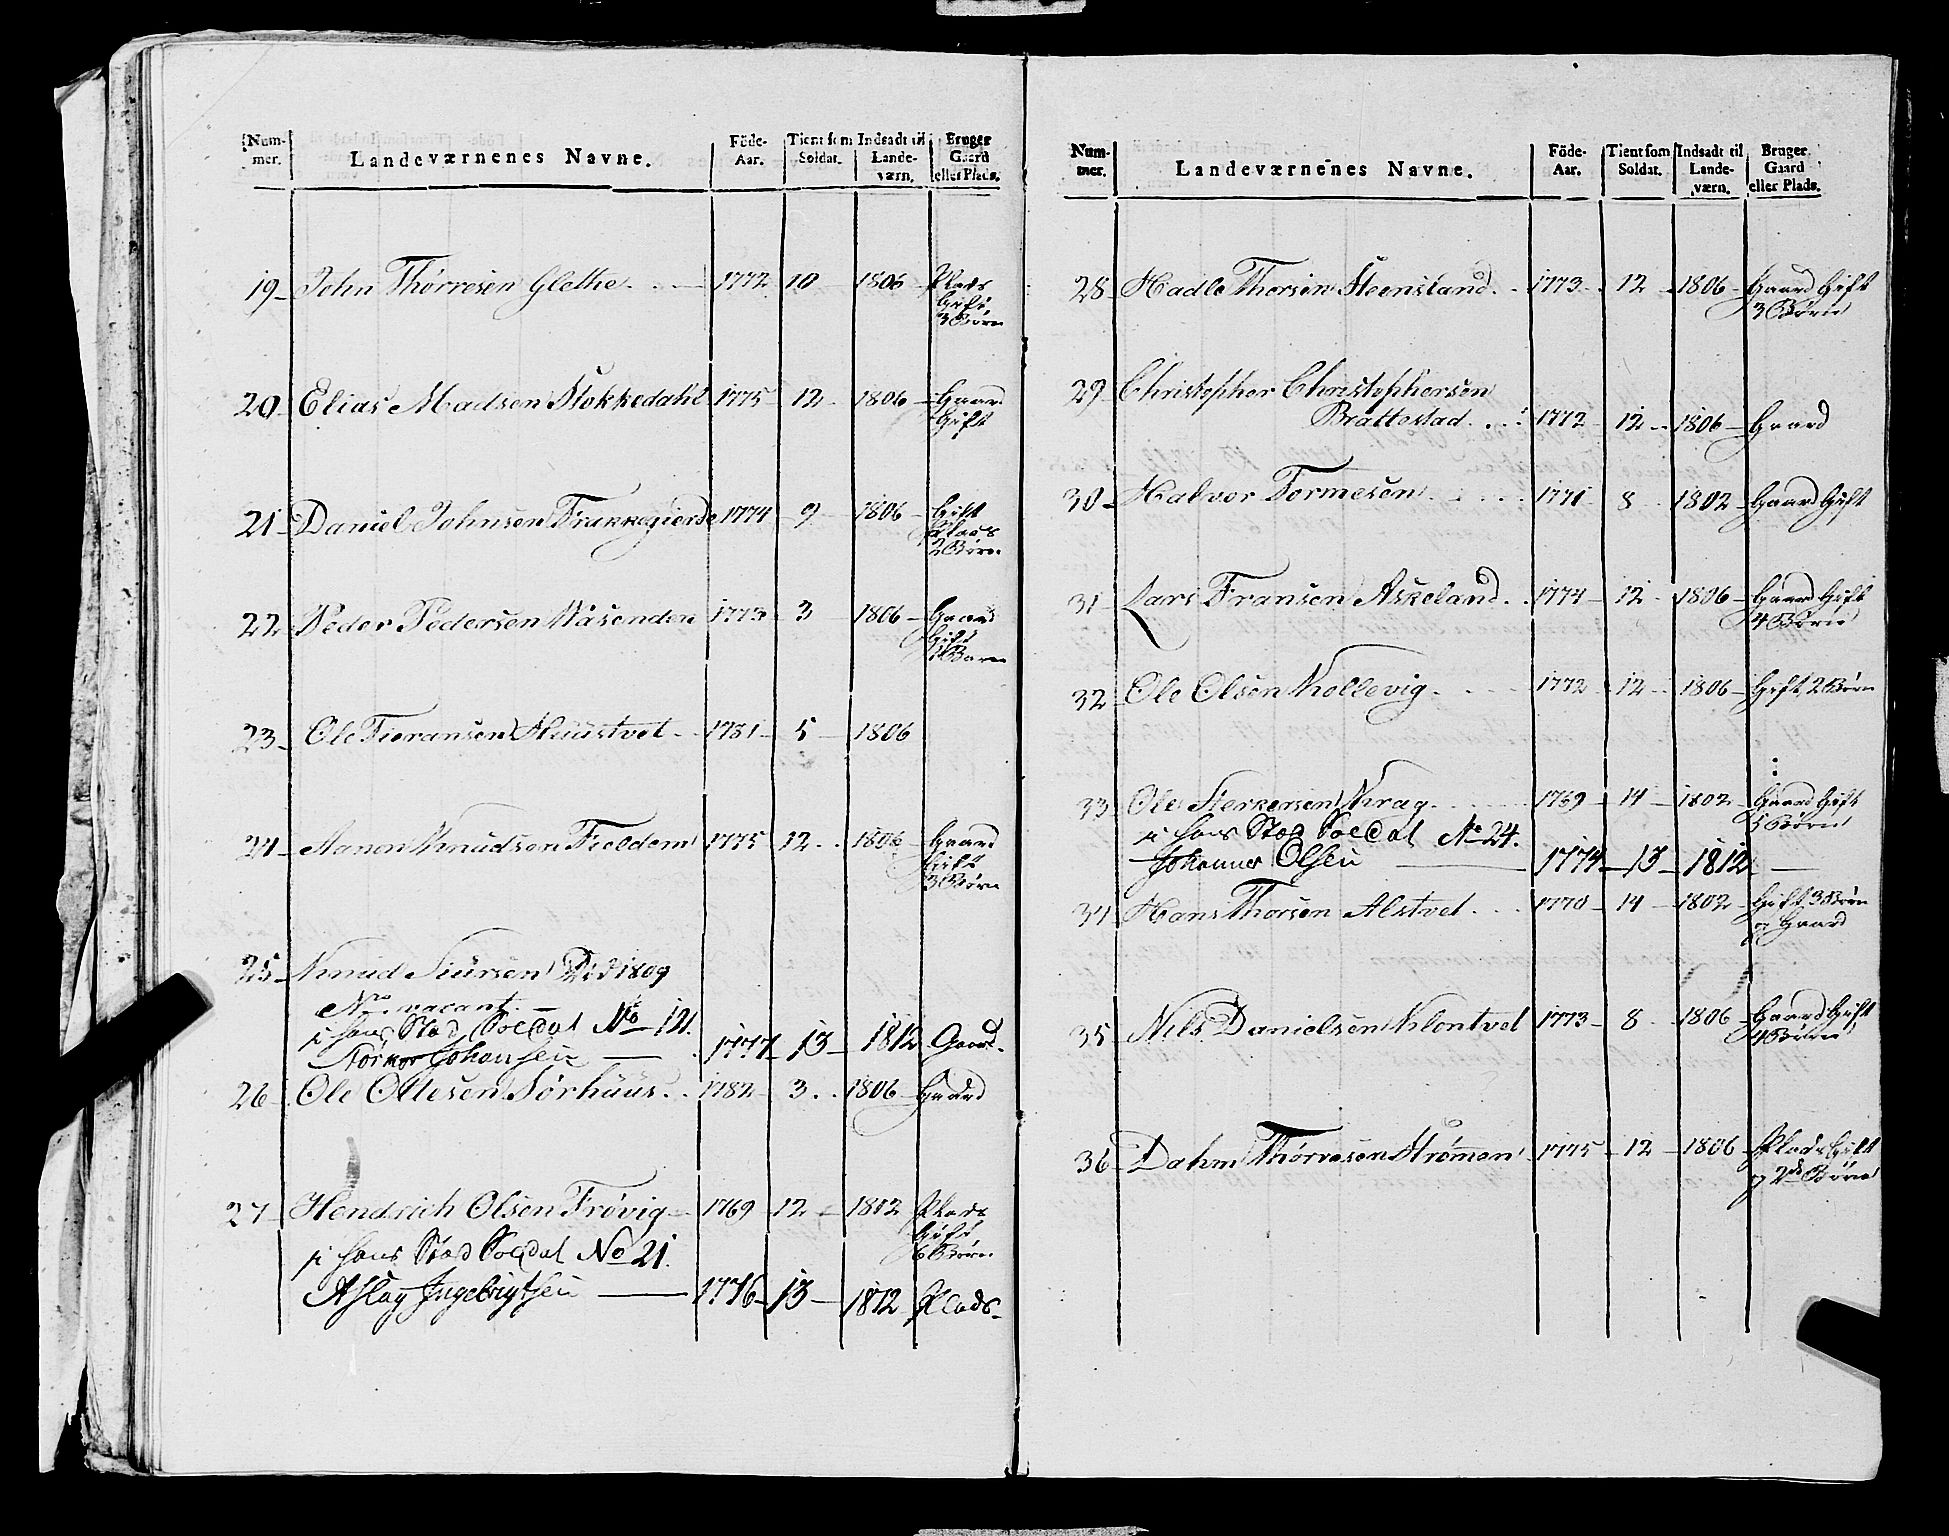 Num-mer. Landeværnenes Navne. Föde-Aar. Tient som Soldat. Indsadt til Lande-værn. Bruger Gaard eller Plads.
19 John Thørresen Glethe 1772 10 1806 Plads
Gift
3 Børn
20 Elias Madsen Stokkedahl 1775 12 1806 Gaard
Gift
21 Daniel Johnsen Frakkegierde 1774 9 1806 Gift
Plads
2 Børn
22 Peder Pedersen Waasenden 1773 3 1806 Gaard
Gift
1 Barn
23 Ole Tieransen Huustvet 1781 5 1806
24 Aanen Knudsen Fieldem 1775 12 1806 Gaard
Gift
3 Børn
25 Knud Siursen Död 1809
No vacant
i hans Stæd Soldat No 19.
Størker Johansen 1777 13 1812 Gaard.
26 Ole Ollesen Sørhuus 1782 3 1806 Gaard
27 Hendrich Olsen Frøvig 1769 12 1812 Plads
Gift
6 Børn
i hans Stæd Soldat No 21.
Aslag Ingebrigtsen 1776 13 1812 Plads.
Num-mer. Landeværnenes Navne. Föde-Aar. Tient som Soldat. Indsadt til Lande-værn. Bruger Gaard eller Plads.
28 Hadle Thorsen Steensland 1773 12 1806 Gaard Gift
3 Børn
29 Christopher Christophersen
Brattestad 1772 12 1806 Gaard
30 Halvor Tormesen 1771 8 1802 Gaard Gift
31 Lars Fransen Askeland 1774 12 1806 Gaard Gift
4 Børn
32 Ole Olsen Kollevig 1772 12 1806 Gift, 2 Børn
33 Ole Størkersen Krag 1769 14 1802 Gaard Gift
5 Børn
i hans Stæd Soldat No 24.
Johannes Olsen 1774 13 1812
34 Hans Thorsen Alstvet 1770 14 1802 Gift, 3 Børn
og Gaard
35 Nils Danielsen Klontvet 1773 8 1806 Gaard Gift
4 Børn
36 Dahm Thørresen Strømmen 1775 12 1806 Plads Gift
og 2de Børn